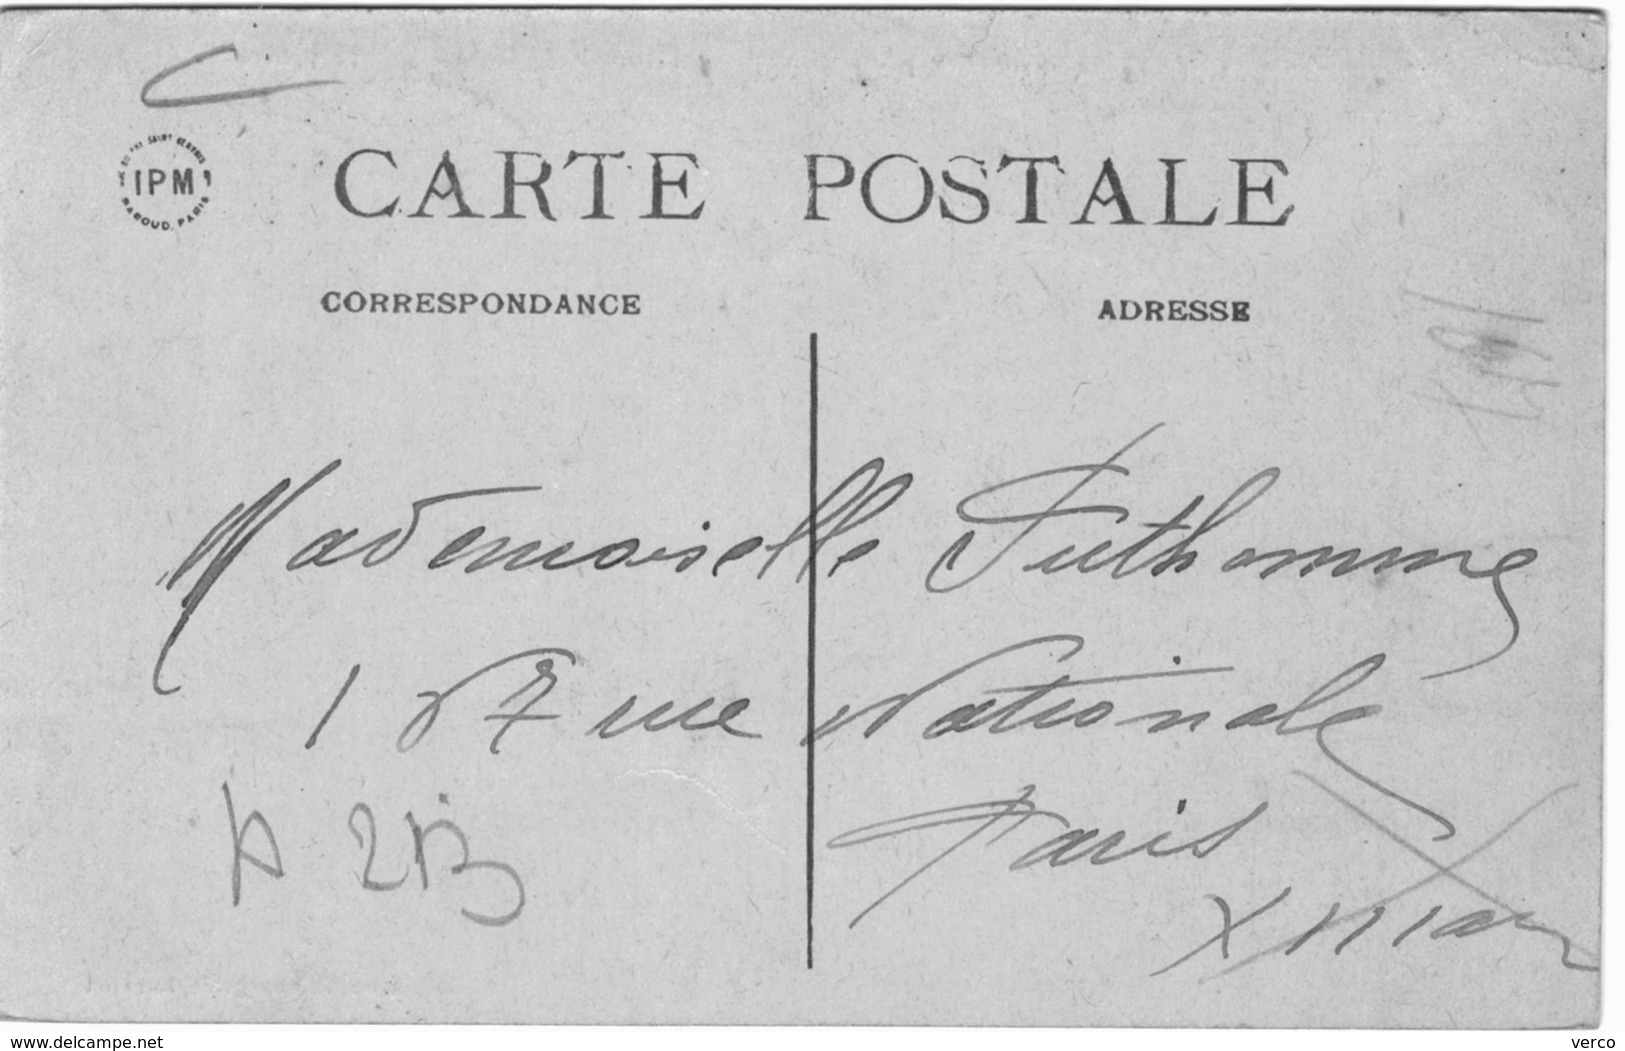 IPM
BAROUD. PARIS
CARTE POSTALE
CORRESPONDANCE
ADRESSE
Mademoiselle Futhomme
187 rue Nationale
Paris
XIII arr
www.delcampe.net
verco